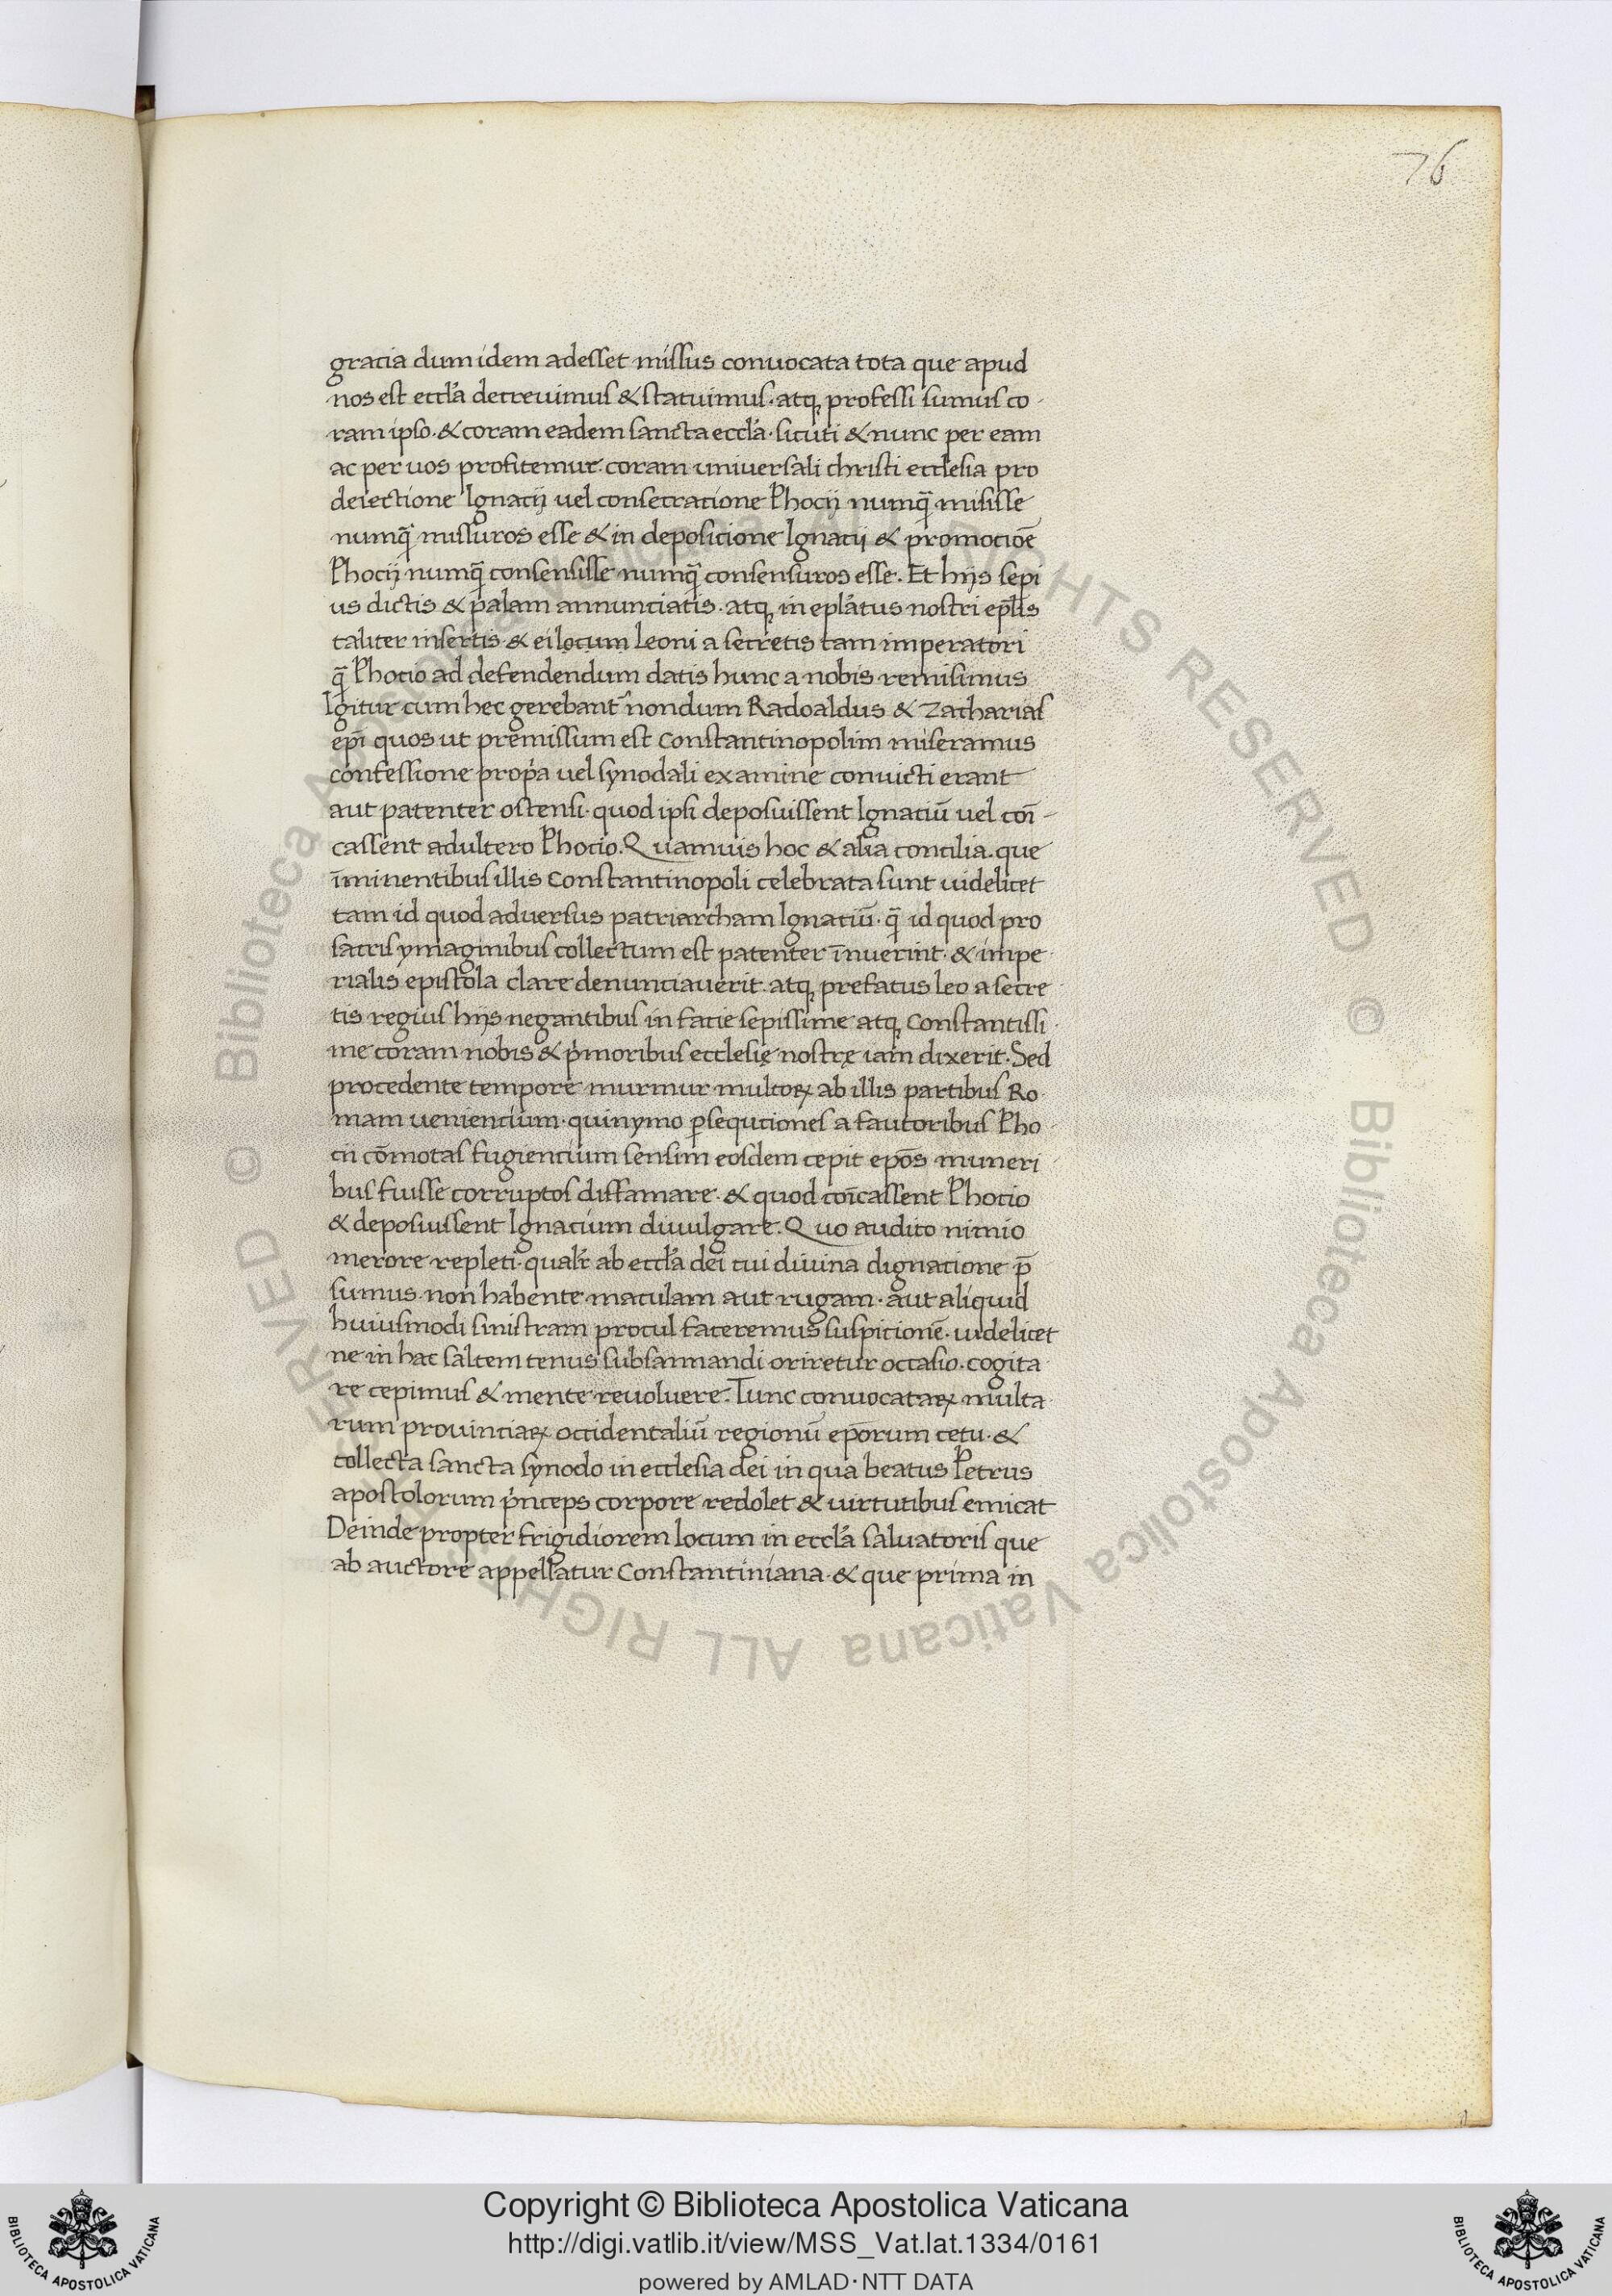 76
gratia dum idem adesset missus convocata tota que apud
nos est eccl̄a decrevimus & statuimus · atq; professi sumus co-
ram ipso · & coram eadem sancta eccl̄a · sicuti & nunc per eam
ac per vos profitemur coram universali christi ecclesia pro
deiectione Ignacij vel consecratione Phocij numq̄ misisse
numq̄ missuros esse & in deposicione Ignacij & promocioē
Phocij numq̄ consensisse numq̄ consensuros esse. Et hijs sepi
us dictis & palam annunciatis · atq; in eplātus nostri epl̄is
taliter insertis · & ei locum leoni a secretis tam imperatori
q̄ Phocio ad defendendum datis hunc a nobis remisimus
Igitur cum hec gerebant̄ nondum Radoaldus & Zacharias
ep̄i quos ut premissum est Constantinopolim miseramus
confessione prop̍a vel synodali examine convicti erant
aut patenter ostensi · quod ipsi deposuissent Ignaciū vel coī-
cassent adultero Phocio. Quamvis hoc & alia concilia · que
īminentibus illis Constantinopoli celebrata sunt videlicet
tam id quod adversus patriarcham Ignaciū · q̄ id quod pro
sacris ymaginibus collectum est patenter īnuerint · & impe-
rialis epistola clare denunciaverit · atq; prefatus leo a secre-
tis regius hijs negantibus in facie sepissime atq; constantissi-
me coram nobis & p̍moribus ecclesię nostrę iam dixerit. Sed
procedente tempore murmur multoꝝ ab illis partibus Ro-
mam veniencium · quinymo ꝑsequtiones a fautoribus Pho-
cii cōmotas fugiencium sensim eosdem cepit epōs muneri-
bus fuisse corruptos diffamare · & quod coīcassent Phocio
& deposuissent Ignacium divulgare. Quo audito nimio
merore repleti · qualr̄ ab eccl̄a dei cui divina dignacione p̄
sumus · non habente maculam aut rugam · aut aliquid
huiusmodi sinistram procul faceremus suspicionē · videlicet
ne in hac saltem tenus subsannandi oriretur occasio · cogita
re cepimus & mente revolvere. Tunc convocataꝝ multa
rum provinciaꝝ occidentaliū regionū epōrum cetu · &
collecta sancta synodo in ecclesia dei in qua beatus Petrus
apostolorum p̍nceps corpore redolet & virtutibus emicat
Deinde propter frigidiorem locum in eccl̄a salvatoris que
ab auctore appellatur Constantiniana · & que prima in
© Biblioteca Apostolica Vaticana ALL RIGHTS RESERVED © Biblioteca Apostolica Vaticana ALL RIGHTS RESERVED
BIBLIOTECA APOSTOLICA VATICANA
Copyright © Biblioteca Apostolica Vaticana
http://digi.vatlib.it/view/MSS_Vat.lat.1334/0161
powered by AMLAD·NTT DATA
BIBLIOTECA APOSTOLICA VATICANA